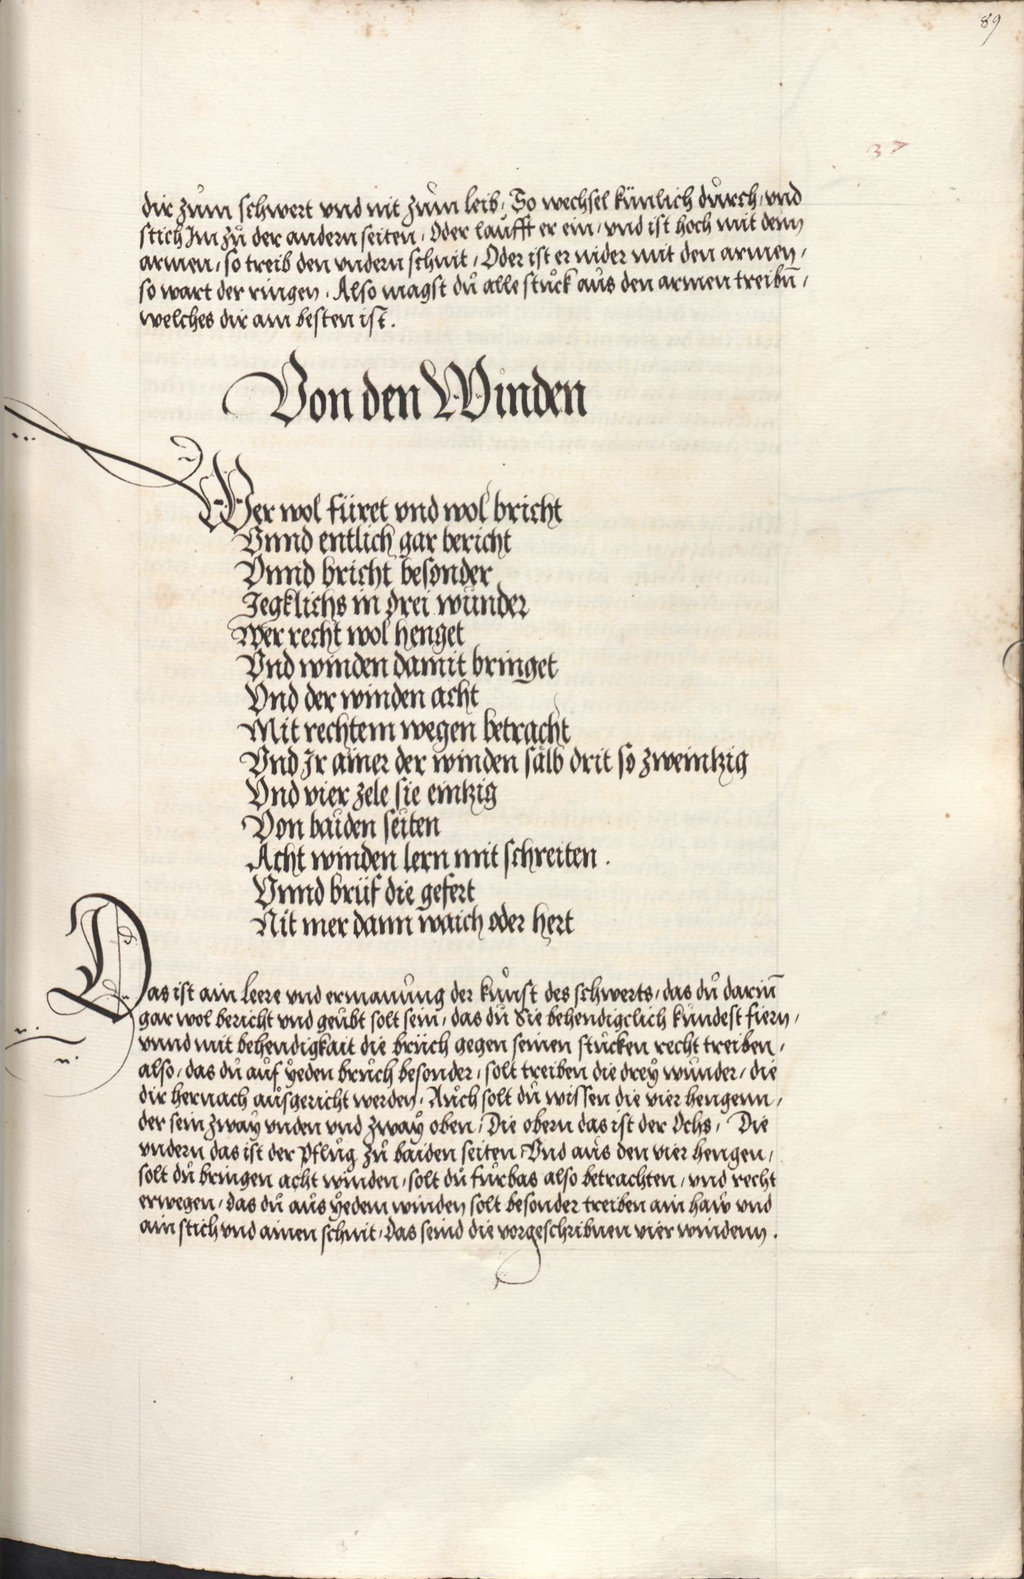 89
37
dir zům schwert vnd nit zům leib / So wechsel künlich důrch / vnd
stich Im zů der andern seiten / Oder laůfft er ein / vnd ist hoch mit denn
armen / so treib den vndern schnit / Oder ist er nider mit den armen /
so wart der ringen . Also magst dů alle stůck aůs den armen treibn̄ /
welches dir am besten ist .
Von den Winden
Wer wol füret vnd wol bricht
Vnnd entlich gar bericht
Vnnd bricht besonder
Jegklichs in drei wůnder
Wer recht wol henget
Vnd winden damit bringet
Vnd der winden acht
Mit rechtem wegen betracht
Vnd Ir ainer der winden salb drit so zweintzig
Vnd vier zele sie eintzig
Von baiden seiten
Acht winden lern mit schreiten .
Vnnd brüf die gefert
Nit mer dann waich oder hert
Das ist ain leere vnd ermanůng der kůnst des schwerts / das dů darin̄
gar wol bericht vnd geůbt solt sein / das dů Sie behendigclich kůndest fiern /
vnnd mit behendigkait die brüch gegen seinen stůcken recht treiben /
also / das dů aůf yeden brůch besonder / solt treiben die drey wůnder / die
dir hernach aůsgericht werden / Aůch solt dů wissen die vier hengenn /
der sein zway vnden vnd zway oben / Die obern das ist der Ochs / Die
vndern das ist der Pflůg zů baiden seiten Vnd aůs den vier hengen /
solt dů bringen acht winden / solt dů fůrbas also betrachten / vnd recht
erwegen / das dů aůs yedem winden solt besonder treiben ain haw vnd
ain stich vnd ainen schnit / Das seind die vorgeschribnen vier windenn .